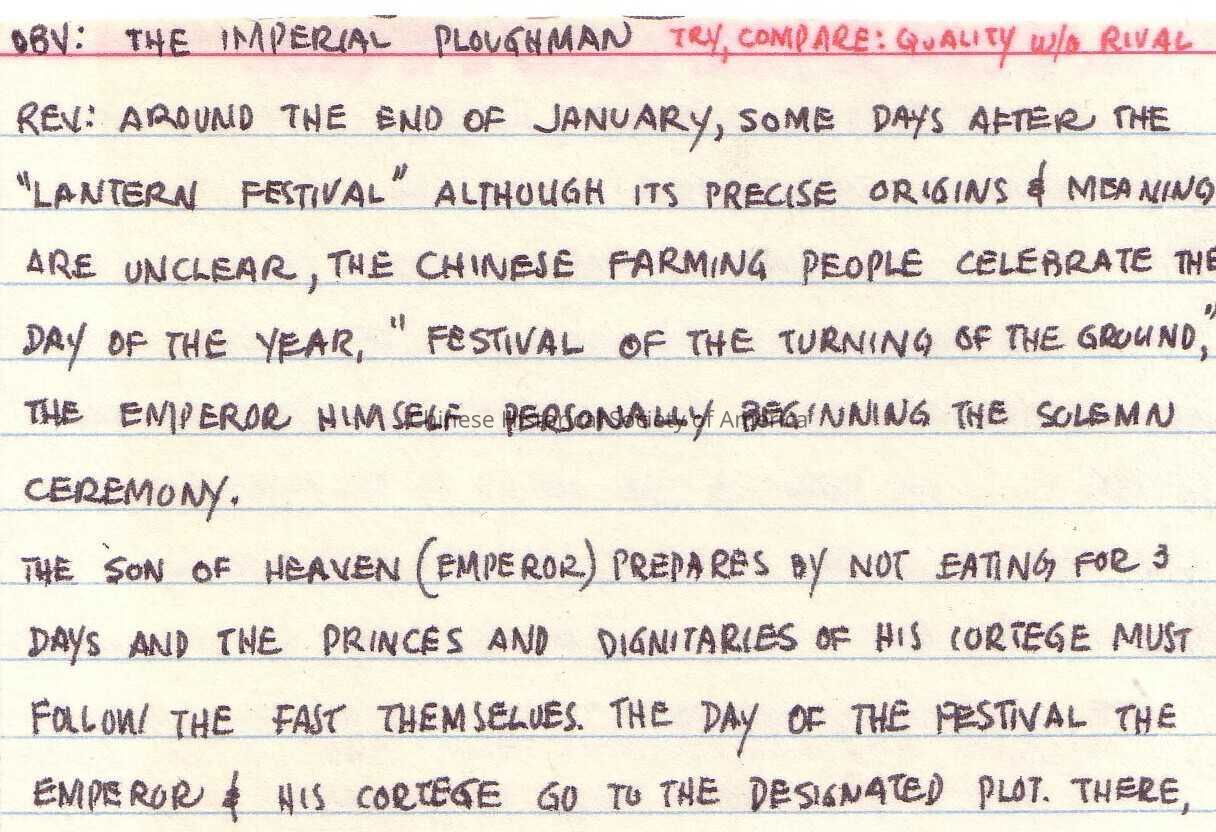 OBV: THE IMPERIAL PLOUGHMAN TRY, COMPARE: QUALITY w/o RIVAL
REV: AROUND THE END OF JANUARY, SOME DAYS AFTER THE
"LANTERN FESTIVAL" ALTHOUGH ITS PRECISE ORIGINS & MEANING
ARE UNCLEAR, THE CHINESE FARMING PEOPLE CELEBRATE THE
DAY OF THE YEAR, "FESTIVAL OF THE TURNING OF THE GROUND,"
THE EMPEROR HIMSELF PERSONALLY BEGINNING THE SOLEMN
Chinese Historical Society of America
CEREMONY.
THE SON OF HEAVEN (EMPEROR) PREPARES BY NOT EATING FOR 3
DAYS AND THE PRINCES AND DIGNITARIES OF HIS CORTEGE MUST
FOLLOW THE FAST THEMSELVES. THE DAY OF THE FESTIVAL THE
EMPEROR & HIS CORTEGE GO TO THE DESIGNATED PLOT. THERE,